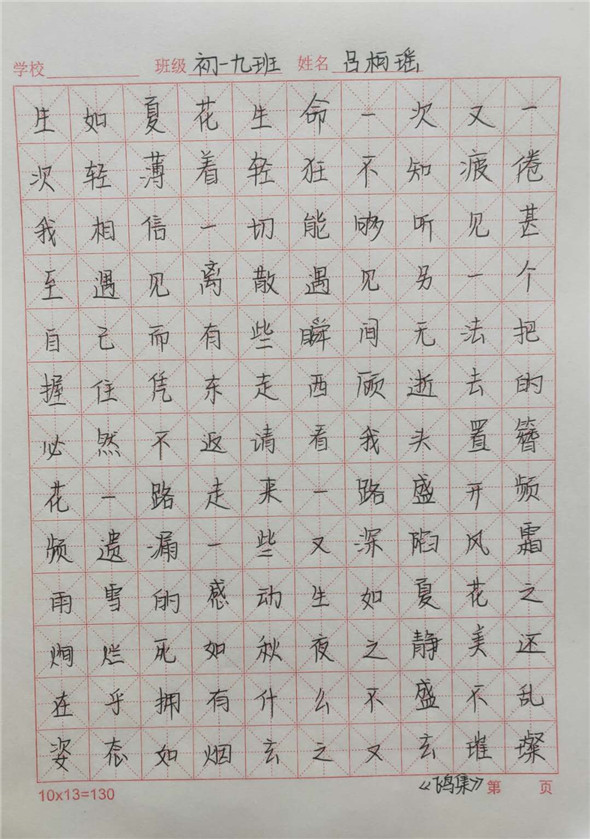 学校 班级 初一九班 姓名 吕柯瑶
生如夏花生命一次又一
次轻薄着轻狂不知疲倦
我相信一切能够听见甚
至遇见离散遇见另一个
自己而有些瞬间无法把
握住凭东走西顾逝去的
必然不返请看我头置簪
花一路走来一路盛开频
频遗漏一些又深陷风霜
雨雪的感动生如夏花之
烂死如秋夜之静美还
在乎拥有什么不盛不乱
姿态如烟玄之又玄璀璨
10x13=130 《飞鸟集》 第 页